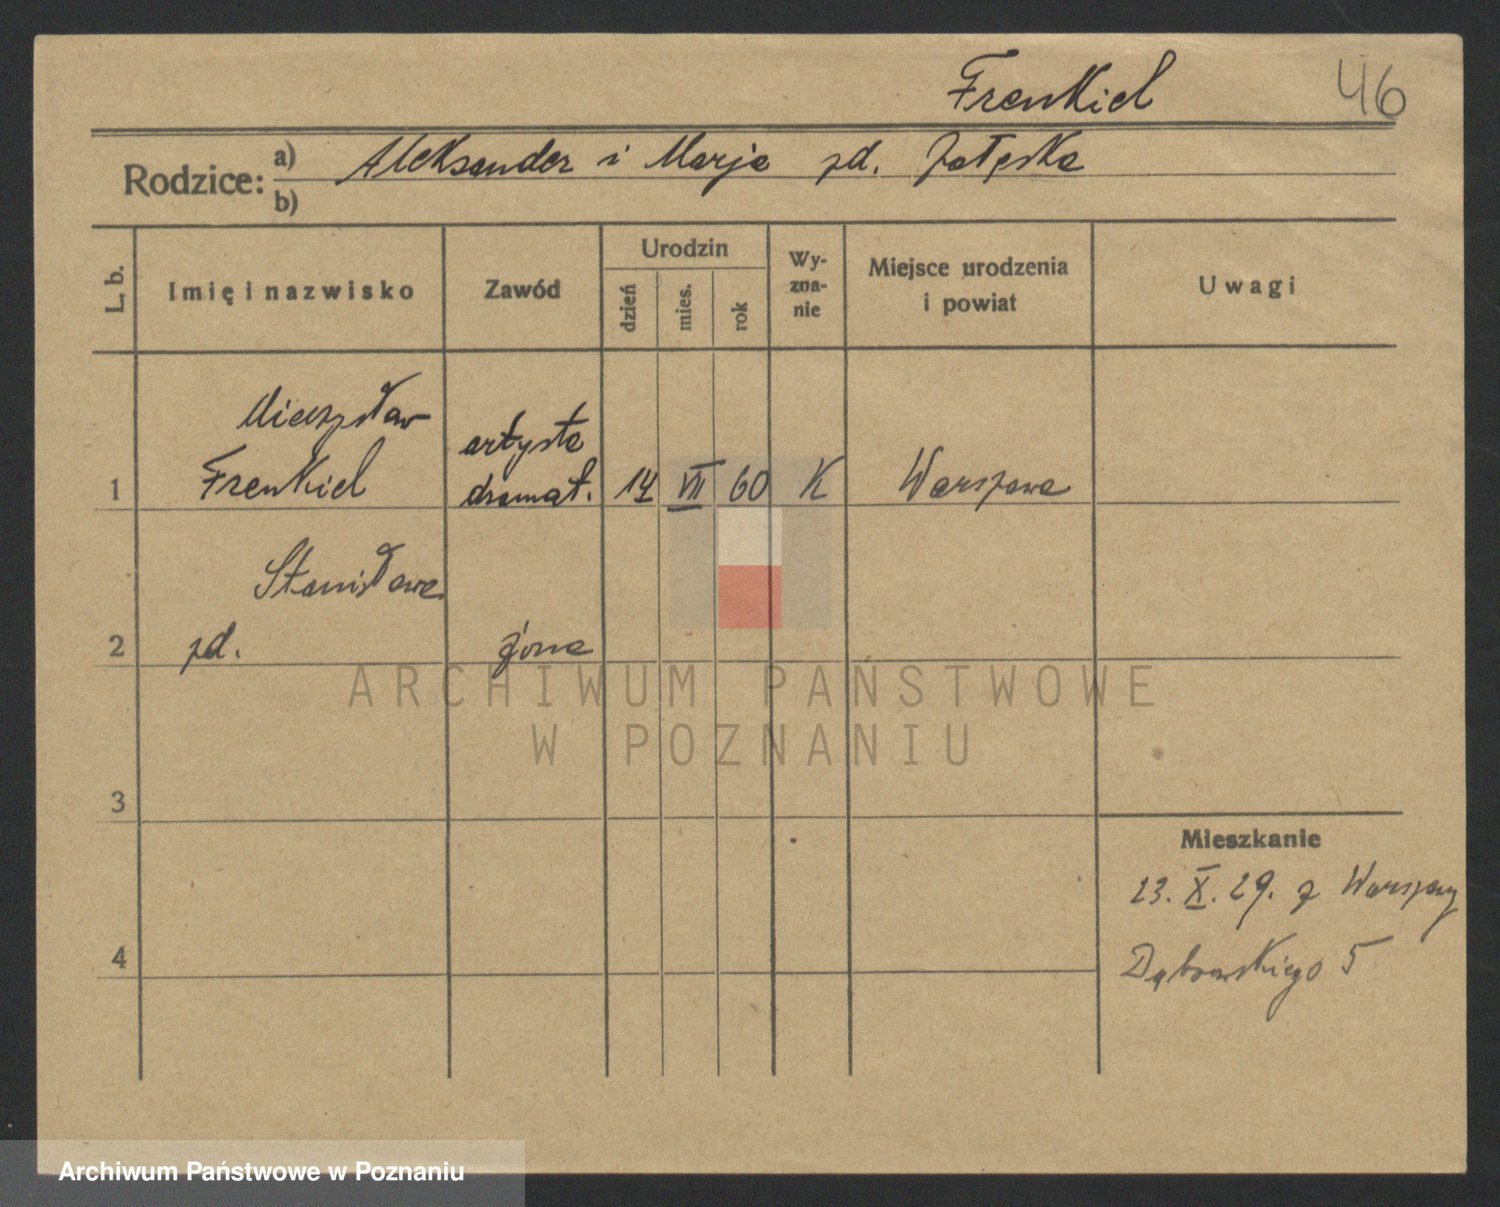 Frenkiel 46
Rodzice: a) Aleksander i Marja zd. Załęska
b)
L. b.
Imię i nazwisko
Zawód
Urodzin
dzień
mies.
rok
Wy-
zna-
nie
Miejsce urodzenia
i powiat
Uwagi
Mieczysław
Frenkiel
artysta
dramat.
1 14 VII 60 K Warszawa
Stanisława
2 zd. żona
ARCHIWUM PAŃSTWOWE
W POZNANIU
3
Mieszkanie
23. X. 29. z Warszawy
4 Dąbrowskiego 5
Archiwum Państwowe w Poznaniu